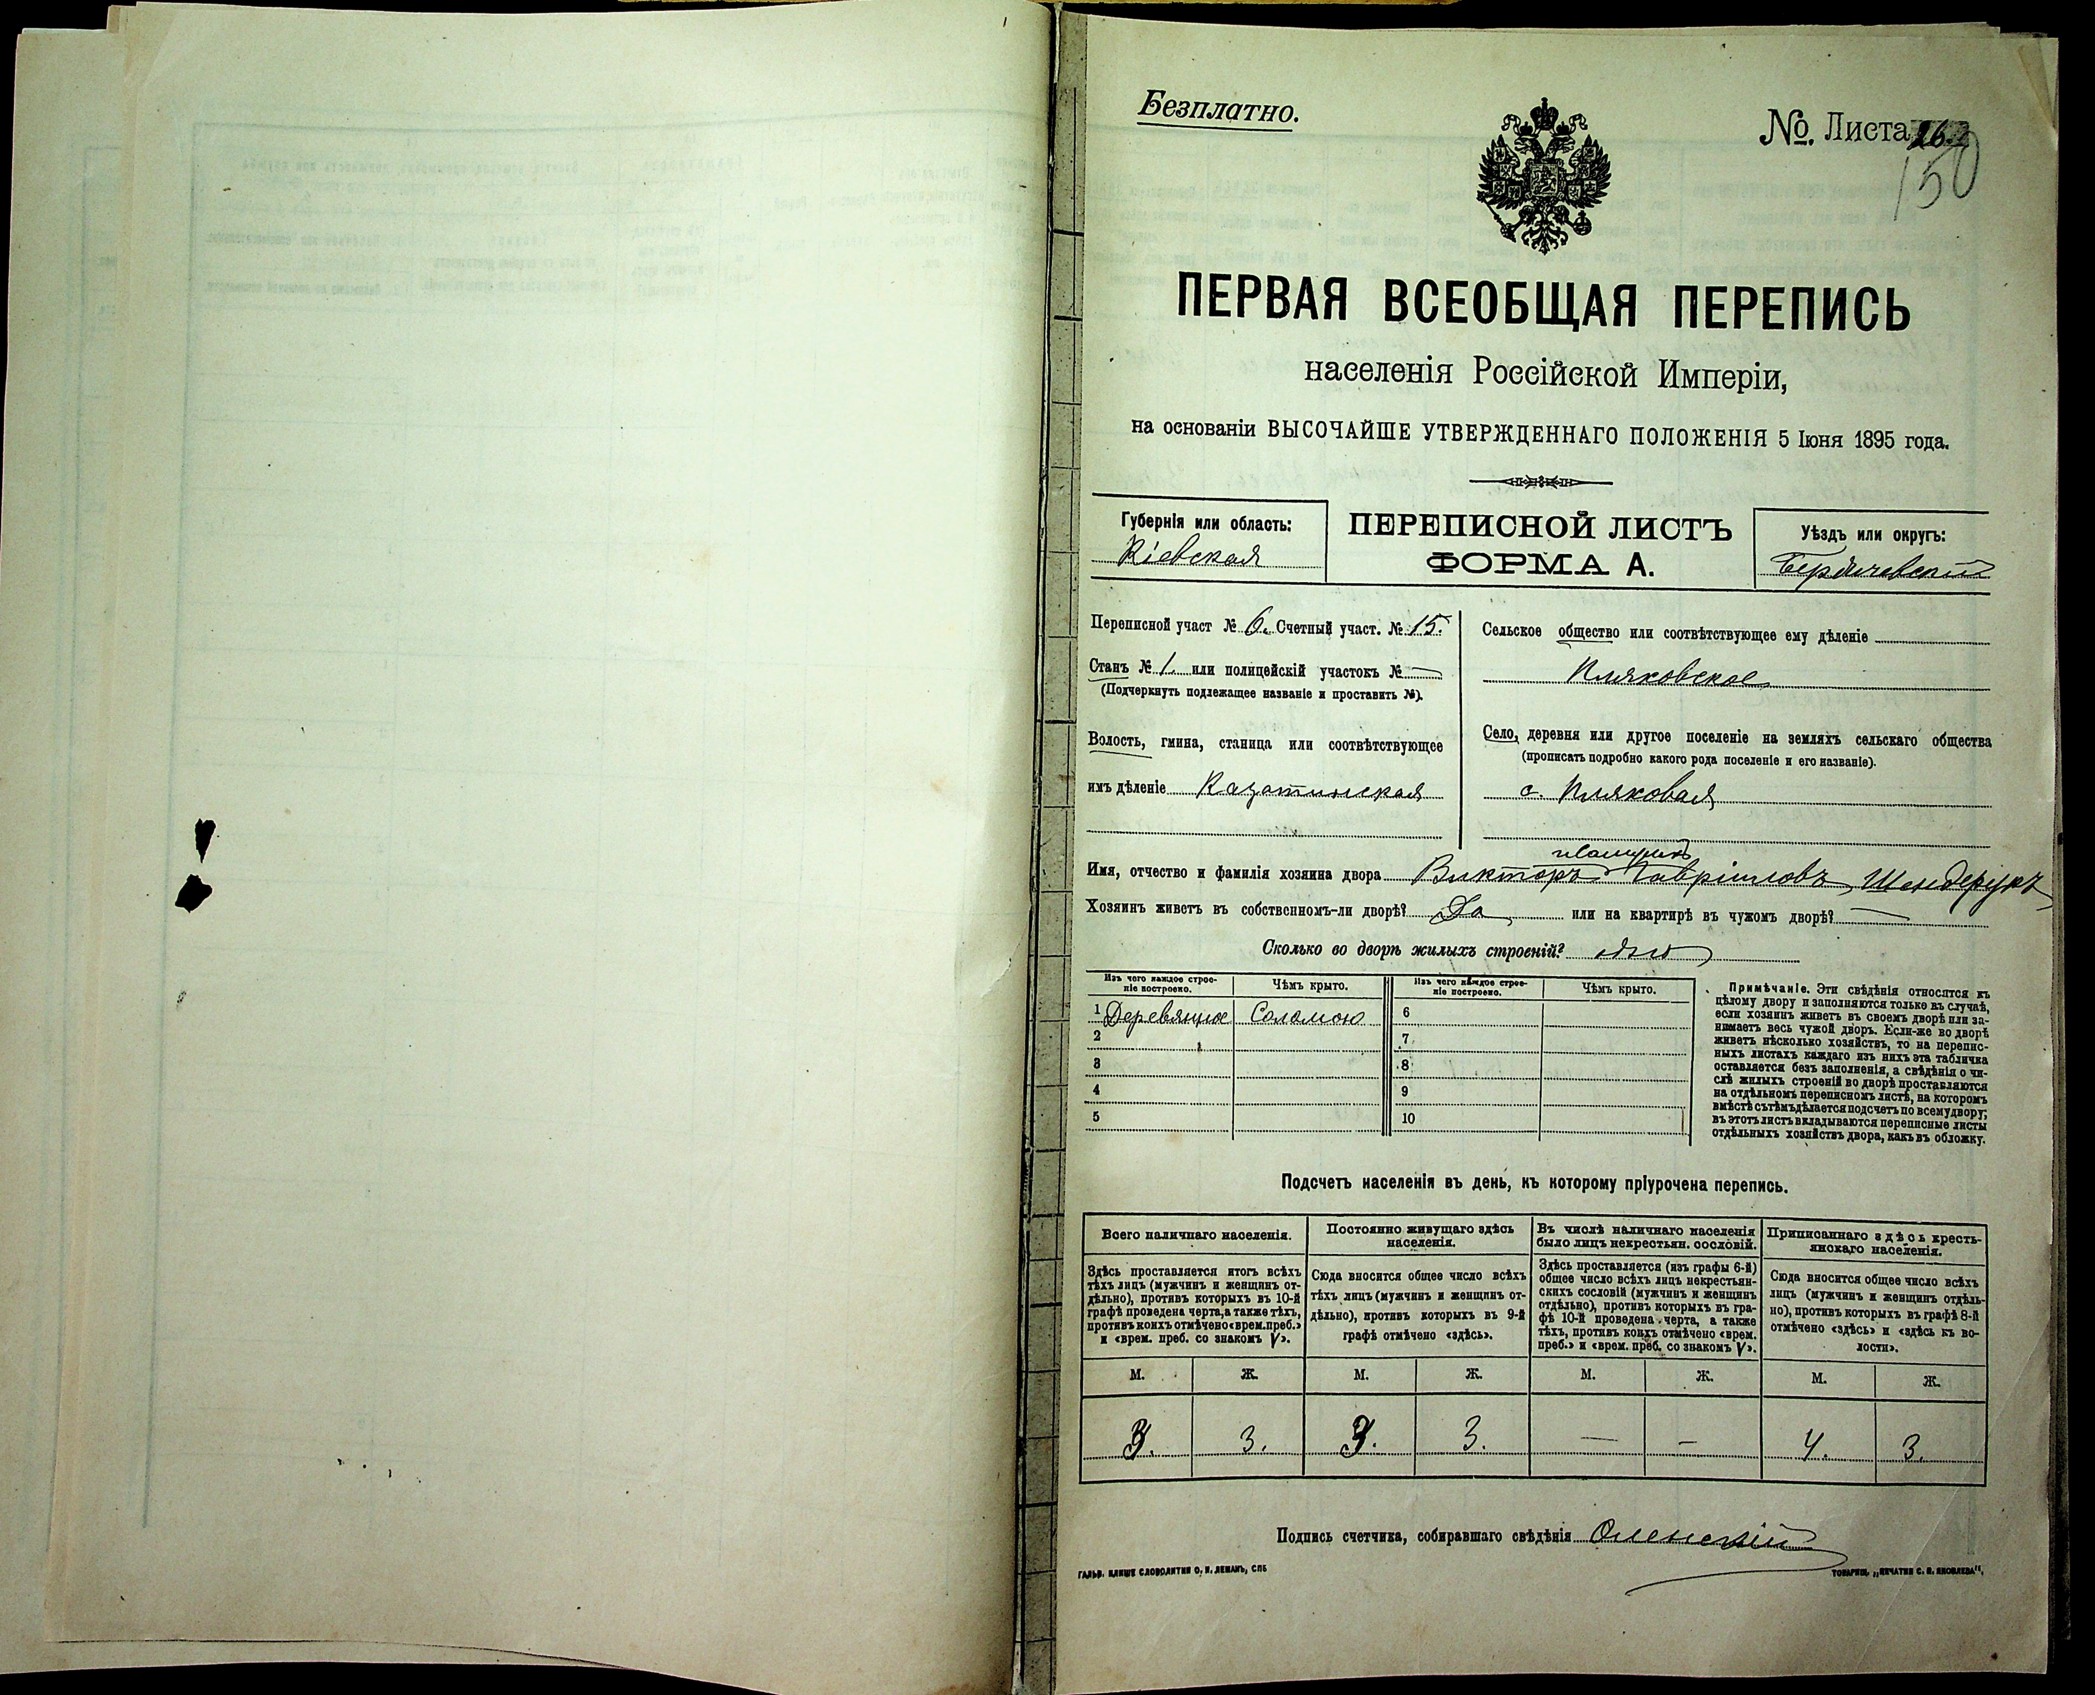 Безплатно.
№. Листа 26.
150
ПЕРВАЯ ВСЕОБЩАЯ ПЕРЕПИСЬ
населенія Россійской Имперіи,
на основаніи ВЫСОЧАЙШЕ УТВЕРЖДЕННАГО ПОЛОЖЕНІЯ 5 Іюня 1895 года.
Губернія или область:
Кіевская
ПЕРЕПИСНОЙ ЛИСТЪ
ФОРМА А.
Уѣздъ или округъ:
Бердичевскій
Переписной участ № 6. Счетный участ. № 15.
Станъ № 1. или полицейскій участокъ № —
(Подчеркнуть подлежащее названіе и проставить №).
Волость, гмина, станица или соотвѣтствующее
имъ дѣленіе Казатинская
Сельское общество или соотвѣтствующее ему дѣленіе
Пляховское
Село, деревня или другое поселеніе на земляхъ сельскаго общества
(прописать подробно какого рода поселеніе и его названіе).
с. Пляховая
Имя, отчество и фамилія хозяина двора Викторъ Гавріиловъ Шендерукъ
Хозяинъ живетъ въ собственномъ-ли дворѣ? Да или на квартирѣ въ чужомъ дворѣ? —
Сколько во дворѣ жилыхъ строеній? одно
Изъ чего каждое строе-
ніе построено.
Чѣмъ крыто.
Изъ чего каждое строе-
ніе построено.
Чѣмъ крыто.
1 Деревянное Соломою 6
2 7
3 8
4 9
5 10
Примѣчаніе. Эти свѣдѣнія относятся къ
цѣлому двору и заполняются только въ случаѣ,
если хозяинъ живетъ въ своемъ дворѣ или за-
нимаетъ весь чужой дворъ. Если-же во дворѣ
живетъ нѣсколько хозяйствъ, то на перепис-
ныхъ листахъ каждаго изъ нихъ эта табличка
оставляется безъ заполненія, а свѣдѣнія о чи-
слѣ жилыхъ строеній во дворѣ проставляются
на отдѣльномъ переписномъ листѣ, на которомъ
вмѣстѣ съ тѣмъ дѣлается подсчетъ по всему двору;
въ этотъ листъ вкладываются переписные листы
отдѣльныхъ хозяйствъ двора, какъ въ обложку.
Подсчетъ населенія въ день, къ которому пріурочена перепись.
Всего наличнаго населенія.
Здѣсь проставляется итогъ всѣхъ
тѣхъ лицъ (мужчинъ и женщинъ от-
дѣльно), противъ которыхъ въ 10-й
графѣ проведена черта, а также тѣхъ,
противъ коихъ отмѣчено «врем. преб.»
и «врем. преб. со знакомъ V».
Постоянно живущаго здѣсь
населенія.
Сюда вносится общее число всѣхъ
тѣхъ лицъ (мужчинъ и женщинъ от-
дѣльно), противъ которыхъ въ 9-й
графѣ отмѣчено «здѣсь».
Въ числѣ наличнаго населенія
было лицъ некрестьян. сословій.
Здѣсь проставляется (изъ графы 6-й)
общее число всѣхъ лицъ некрестьян-
скихъ сословій (мужчинъ и женщинъ
отдѣльно), противъ которыхъ въ гра-
фѣ 10-й проведена черта, а также
тѣхъ, противъ коихъ отмѣчено «врем.
преб.» и «врем. преб. со знакомъ V».
Приписаннаго здѣсь кресть-
янскаго населенія.
Сюда вносится общее число всѣхъ
лицъ (мужчинъ и женщинъ отдѣль-
но), противъ которыхъ въ графѣ 8-й
отмѣчено «здѣсь» и «здѣсь въ во-
лости».
М. Ж. М. Ж. М. Ж. М. Ж.
3. 3. 3. 3. — — 4. 3.
Подпись счетчика, собиравшаго свѣдѣнія Оленскій
ГАЛЬВ. КЛИШЕ СЛОВОЛИТНИ О. И. ЛЕМАНЪ, СПБ
ТОВАРИЩ. „ПЕЧАТНЯ С. П. ЯКОВЛЕВА".